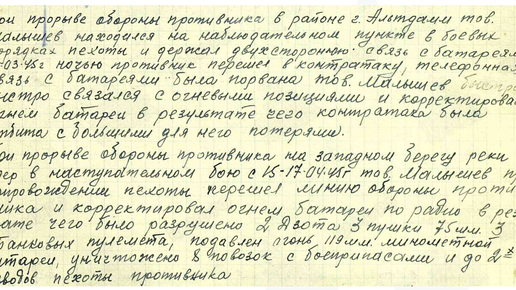 ри прорыве обороны противника в районе г. Альтдамм тов.
Малышев находился на наблюдательном пункте в боевых
орядках пехоты и держал двухстороннюю связь с батареям
-03.45г ночью противник перешел в контратаку, телефонная
вязь с батареями была порвана тов. Малышев быстро
ыстро связался с огневыми позициями и корректирова
гнем батареи в результате чего контратака была
тбита с большими для него потерями.
ри прорыве обороны противника на западном берегу реки
дер в наступательном бою с 15-17.04.45г тов. Малышев п
опровождении пехоты перешел линию обороны проти
ика и корректировал огнем батареи по радио в рез
тате чего было разрушено 2 дзота 3 пушки 75мм. 3
танковых пулемета, подавлен огонь 119мм. минометной
атареи, уничтожено 8 повозок с боеприпасами и до 2х
зводов пехоты противника